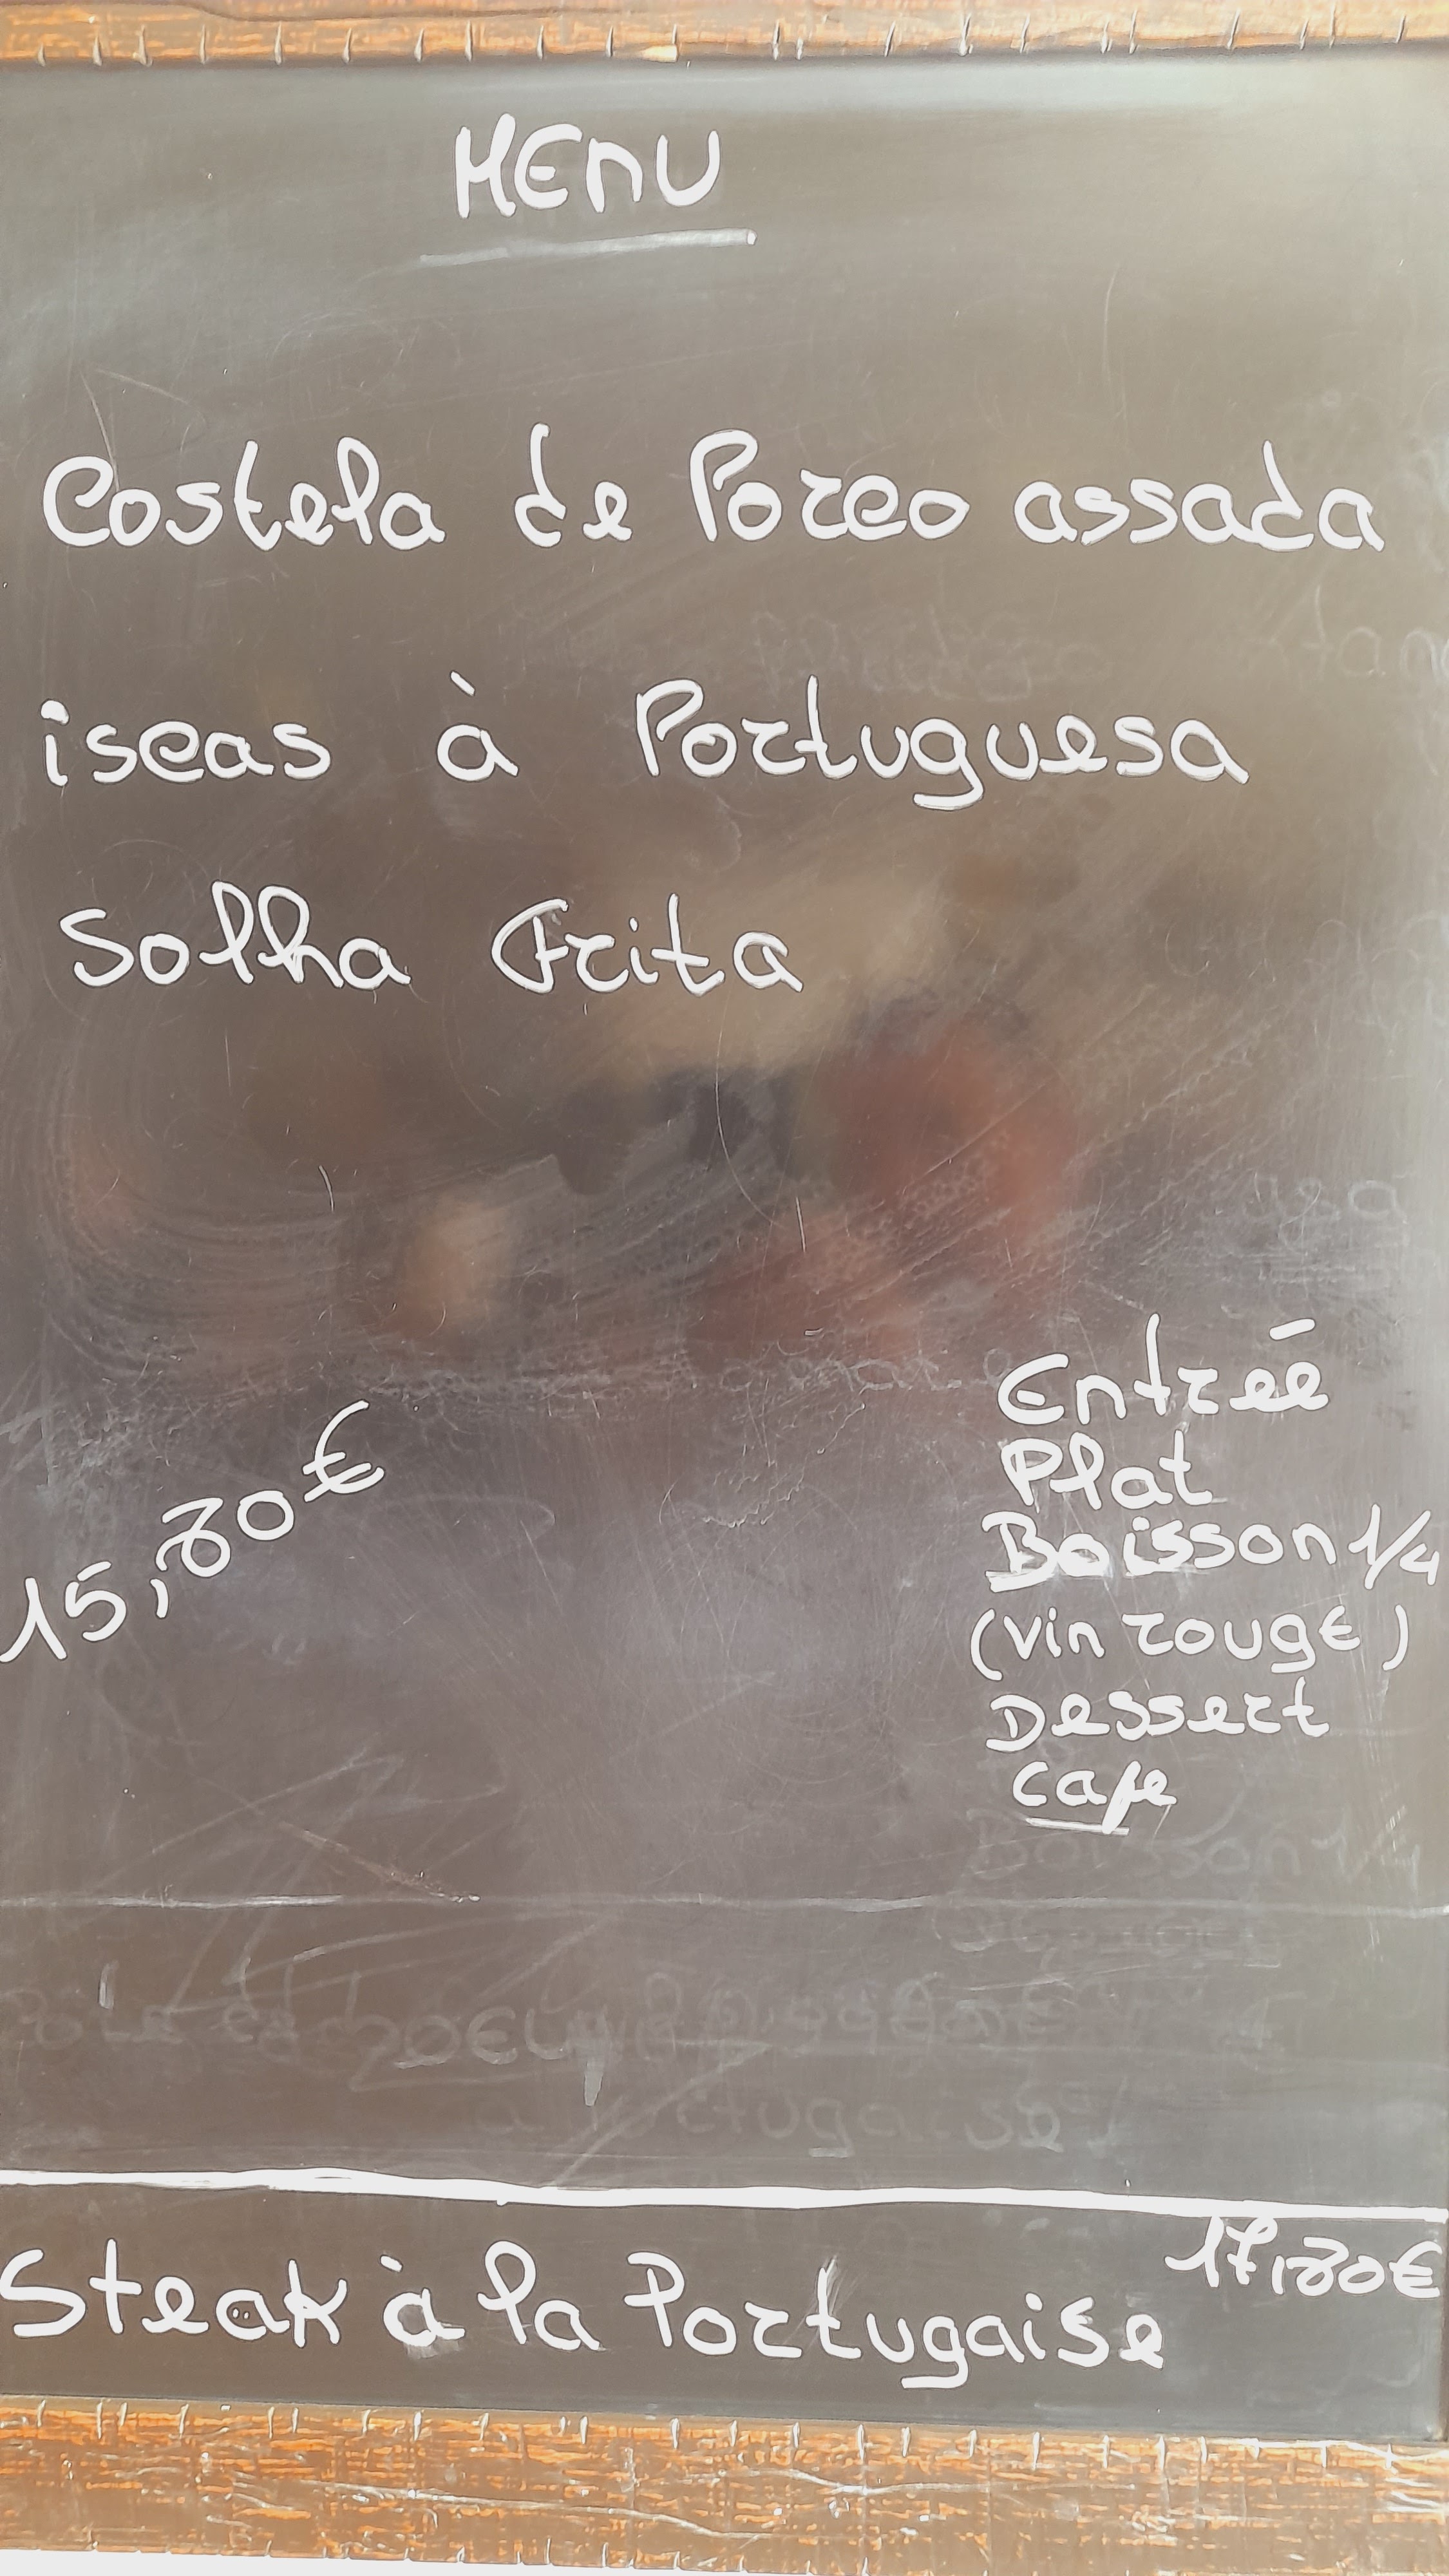 MENU
Costela de Porco assada
iscas à Portuguesa
Solha Frita
15,80€
Entreé
Plat
Boisson 1/4
(vin rouge)
Dessert
Cafe
17,80€
Steak à la Portugaise